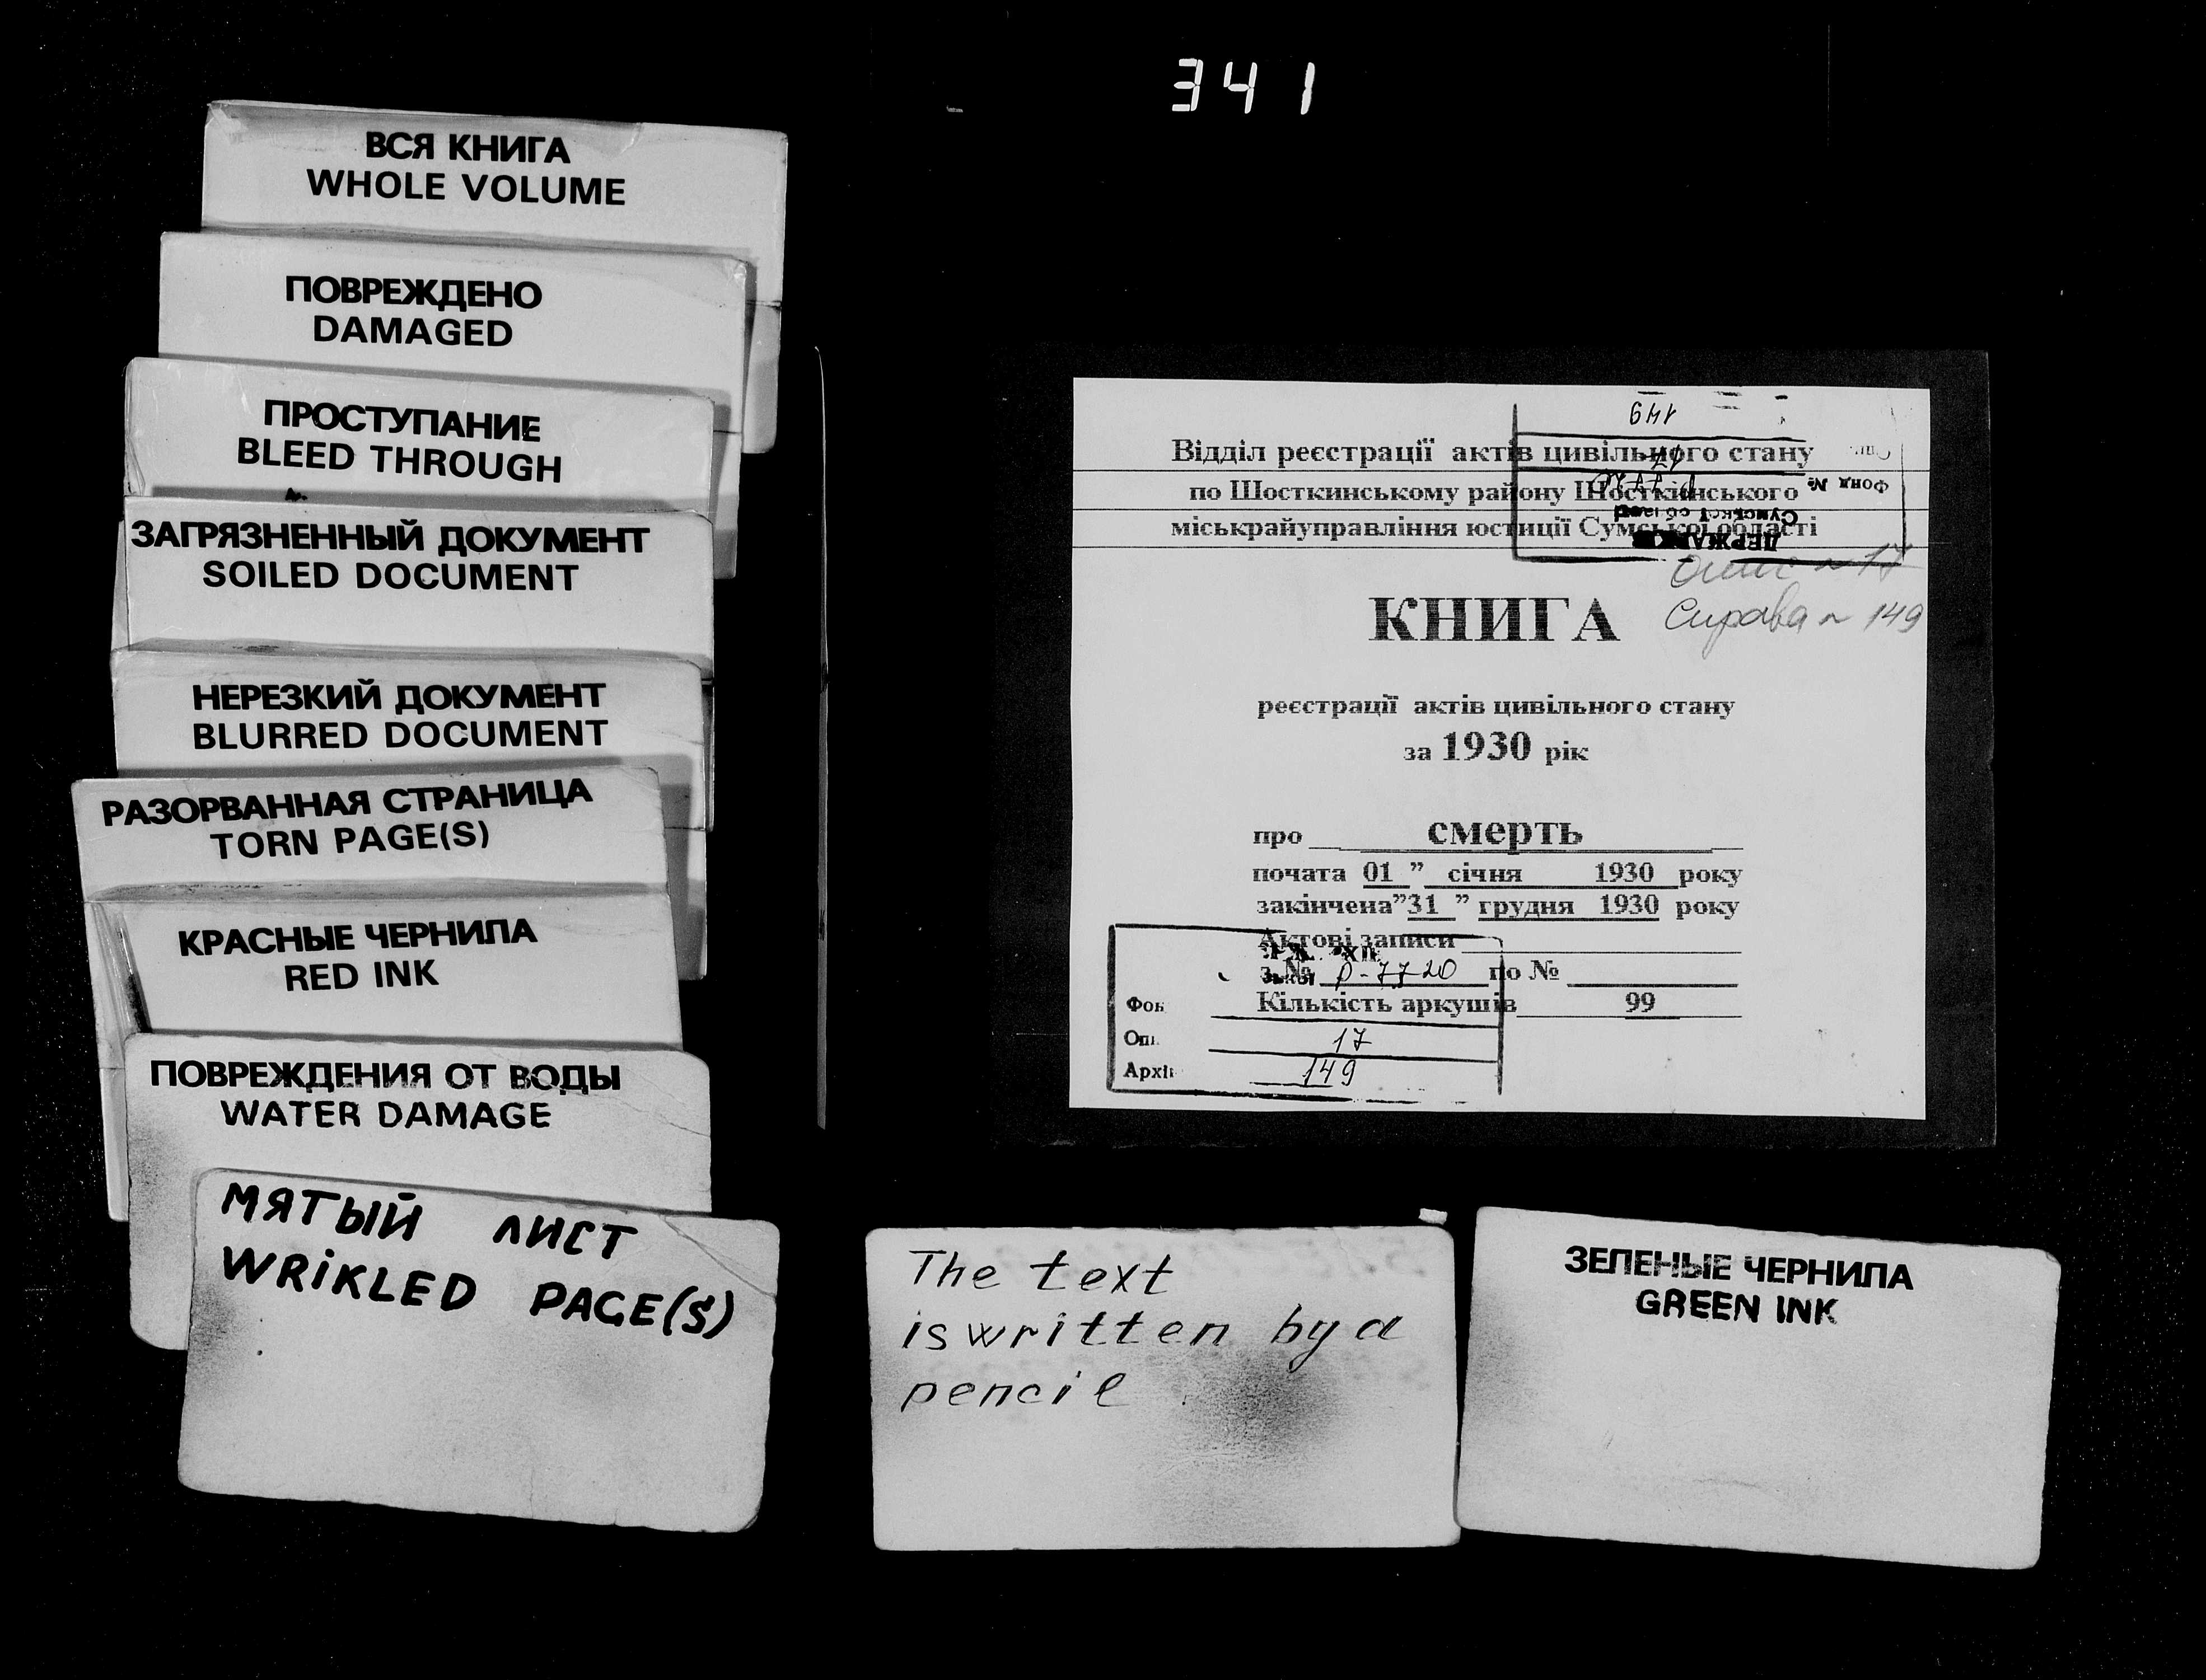 341
ВСЯ КНИГА
WHOLE VOLUME
ПОВРЕЖДЕНО
DAMAGED
ПРОСТУПАНИЕ
BLEED THROUGH
ЗАГРЯЗНЕННЫЙ ДОКУМЕНТ
SOILED DOCUMENT
НЕРЕЗКИЙ ДОКУМЕНТ
BLURRED DOCUMENT
РАЗОРВАННАЯ СТРАНИЦА
TORN PAGE(S)
КРАСНЫЕ ЧЕРНИЛА
RED INK
ПОВРЕЖДЕНИЯ ОТ ВОДЫ
WATER DAMAGE
МЯТЫЙ ЛИСТ
WRIKLED PAGE(S)
149
17
Фонд №
Сумської області
Відділ реєстрації актів цивільного стану
по Шосткинському району Шосткинського
міськрайуправління юстиції Сумської області
Опис № 17
Справа № 149
КНИГА
реєстрації актів цивільного стану
за 1930 рік
про смерть
почата 01 " січня 1930 року
закінчена"31 " грудня 1930 року
Актові записи
з № Р-7720 по №
Кількість аркушів 99
Фон
Оп 17
Архі 149
The text
is written by a
pencil
ЗЕЛЕНЫЕ ЧЕРНИЛА
GREEN INK